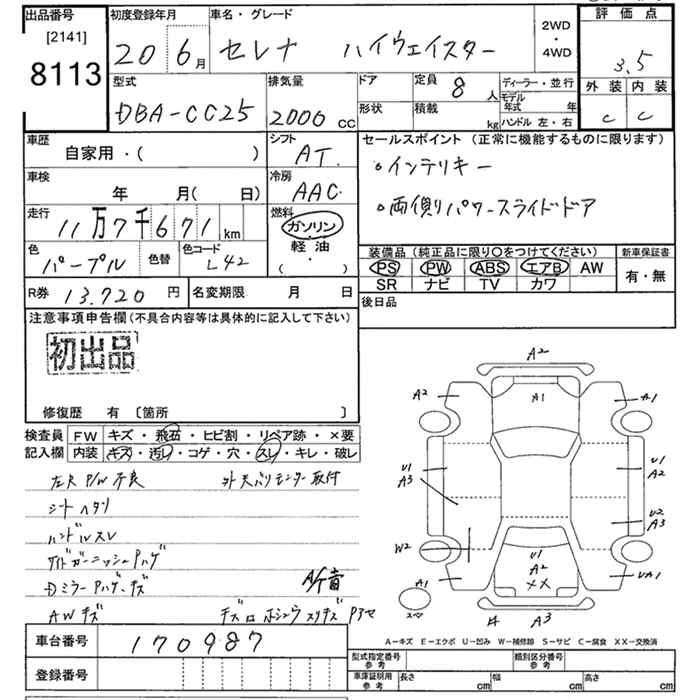 出品番号
[2141]
8113
初度登録年月
20 6月
車名・グレード
セレナ ハイウェイスター
2WD
・
4WD
評価点
3.5
外装 内装
C C
型式
DBA-CC25
排気量
2000 cc
ドア
形状
定員 8 人
積載 kg
ディーラー・並行
モデル年式 年
ハンドル 左・右
車歴
自家用・( )
シフト
AT
セールスポイント(正常に機能するものに限ります)
・インテリキー
・両側パワースライドドア
車検
年 月( 日)
冷房
AAC
走行
11万7千671km
燃料
ガソリン
軽油
( ・ )
色
パープル
色替
色コード
L42
装備品(純正品に限り○をつけてください)
PS PW ABS エアB AW
SR ナビ TV カワ
新車保証書
有・無
R券 13.720円
名変期限 月 日
後日品
注意事項申告欄(不具合内容等は具体的に記入して下さい)
初出品
修復歴 有 〔箇所 〕
検査員
記入欄
FW キズ・飛石・ヒビ割・リペア跡・×要
内装 キズ・汚レ・コゲ・穴・スレ・キレ・破レ
左R P/W不良
シートヘタリ
ハンドルスレ
サイドガーニッシュPハゲ
DミラーPハゲ・キズ
AWキズ
車台番号 170987
登録番号
A2
A2 A1 A1
U1 A3
U1 A2
U2 A3
W2
U1 A2 XX
A1 UA1
スペア
A3
A-キズ E-エクボ U-凹み W-補修跡 S-サビ C-腐食 XX-交換済
型式指定番号 参考
類別区分番号 参考
車庫証明用 参考
長さ cm 幅 cm 高さ cm